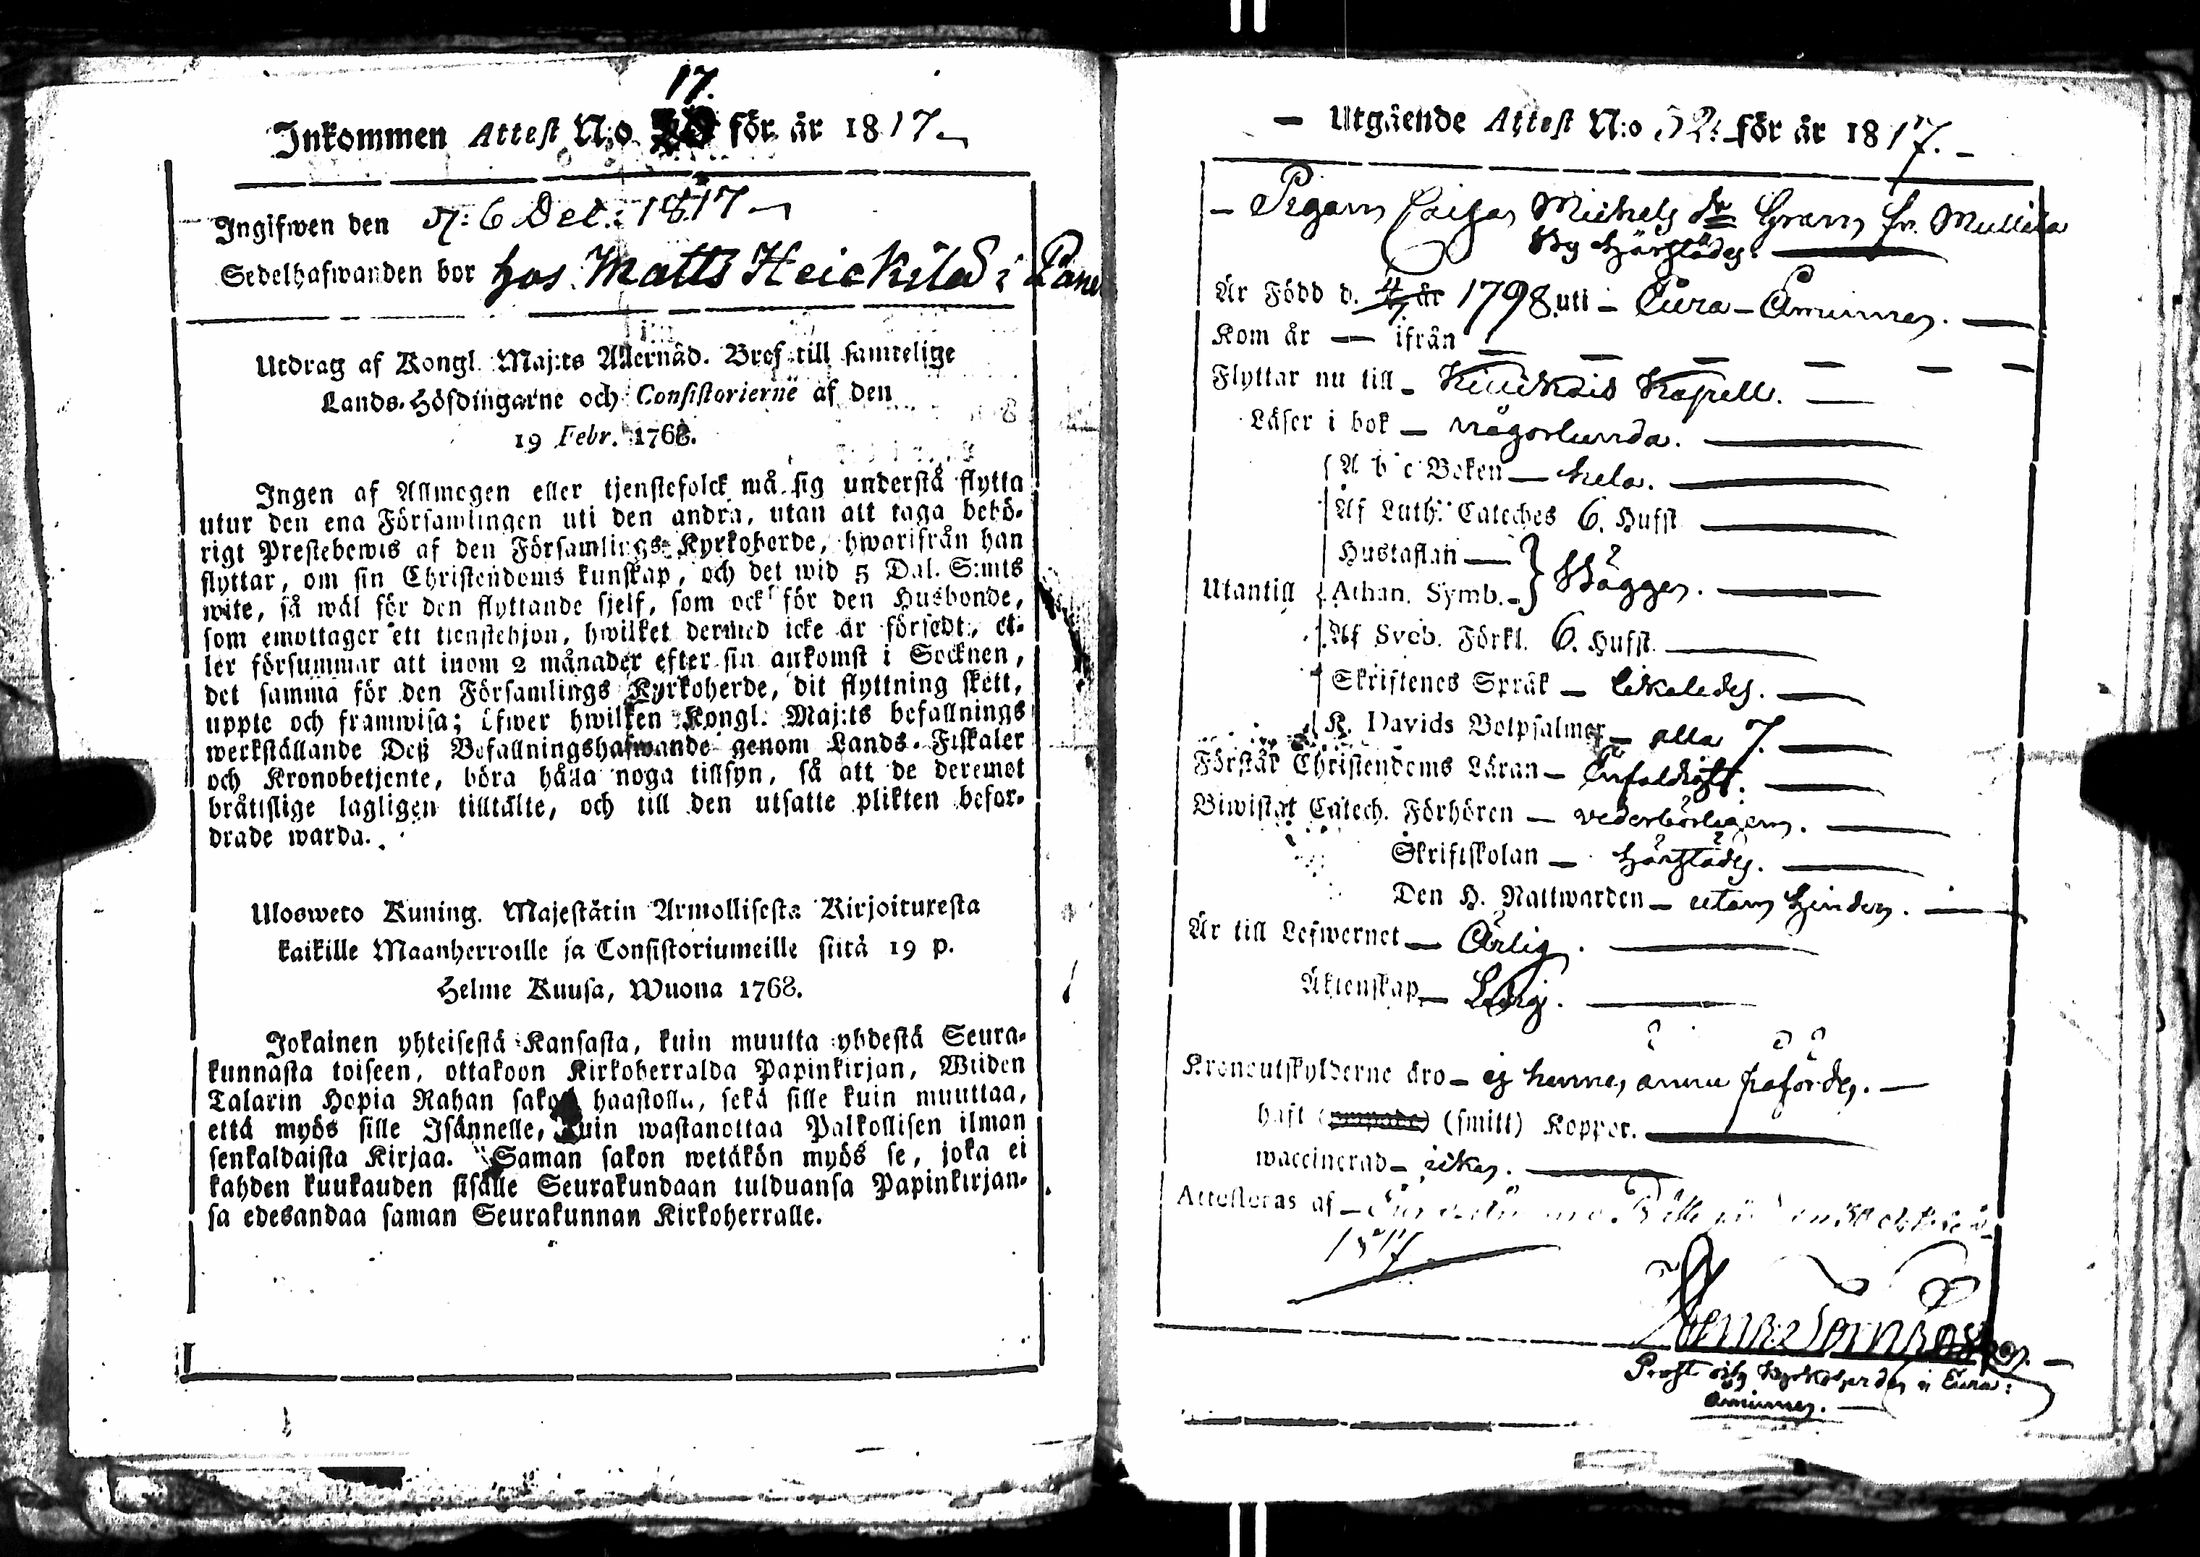 17.
Inkommen Attest N:o för år 1817.
Ingifwen den 6 Dec. 1817
Sedelhafwanden bor hos Matts Heickilä i Pane
Utdrag af Kongl. Maj:ts Allernåd. Bref till samtelige
Lands-Höfdingarne och Consistorierne af den
19 Febr. 1768.
Ingen af Allmogen eller tjenstefolck må sig understå flytta
utur den ena Församlingen uti den andra, utan att taga behö-
rigt Prestebewis af den Församlings-Kyrkoherde, hwarifrån han
flyttar, om sin Christendoms kunskap, och det wid 5 Dal. S:mts
wite, så wäl för den flyttande sjelf, som ock för den Husbonde,
som emottager ett tienstehjon, hwilket dermed icke är försedt, el-
ler försummar att inom 2 månader efter sin ankomst i Socknen,
det samma för den Församlings Kyrkoherde, dit flyttning skett,
uppte och framwisa; öfwer hwilken Kongl. Maj:ts befallnings
werkställande Deß Befallningshafwande genom Lands-Fiskaler
och Kronobetjente, böra hålla noga tillsyn, så att de deremot
bråttslige lagligen tilltalte, och till den utsatte plikten befor-
drade warda.
Ulosweto Kuning. Majestätin Armollisesta Kirjoituxesta
kaikille Maanherroille ja Consistoriumeille siitä 19 p.
Helme Kuusa, Wuona 1768.
Jokainen yhteisestä Kansasta, kuin muutta yhdestä Seura-
kunnasta toiseen, ottakoon Kirkoherralda Papinkirjan, Wiiden
Talarin Hopia Rahan sakon haastolla, sekä sille kuin muuttaa,
että myös sille Isännelle, kuin wastanottaa Palkollisen ilman
senkaldaista Kirjaa. Saman sakon wetäkön myös se, joka ei
kahden kuukauden sisälle Seurakundaan tulduansa Papinkirjan-
sa edesandaa saman Seurakunnan Kirkoherralle.
Utgående Attest N:o 52: för år 1817.
Pigan Caisa Michels dr Gran fr. Mullila
By härstädes.
Är Född d. år 1798 uti Eura-Åminne.
Kom år — ifrån
Flyttar nu till Kiukais Kapell.
Läser i bok — någorlunda.
A b c Boken — hela.
Af Luth. Cateches 6. Hufst.
Hustaflan —
Utantill Athan. Symb. } Bägge.
Af Sveb. Förkl. 6. Hufst.
Skriftenes Språk — likaledes.
K. Davids Botpsalmer — alla 7.
Förstår Christendoms Läran — Enfaldigt.
Biwistat Catech. Förhören — vederbörligen.
Skriftskolan — härstädes.
Den H. Nattwarden — utan hinder.
Är till Lefwernet — Ärlig.
Äktenskap — Ledig.
Kronoutskylderne äro — ej henne ännu påförde.
haft (smitt) Koppor.
waccinerad — icke.
Attesteras af —
1817
Prost och Kyrkoherde i Eura:
Åminne.